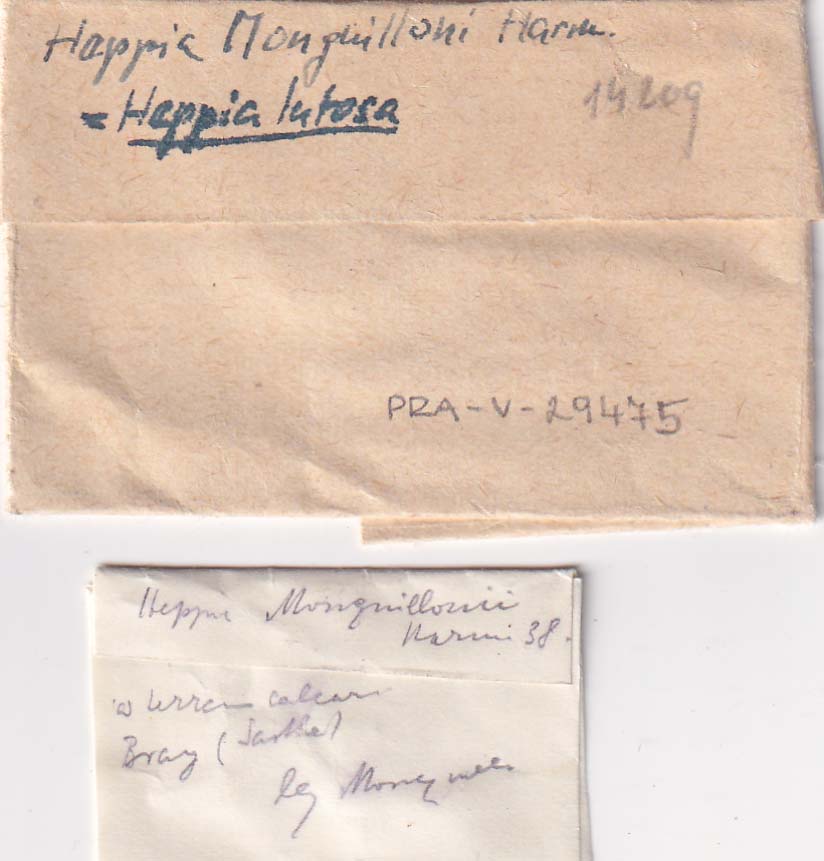 Heppia Monguilloni Harm.
= Heppia lutosa
14209
PRA-V-29475
Heppia Monguillonii
Harm 38.
terrain calcar
Bray (Sarthe)
leg Monguill